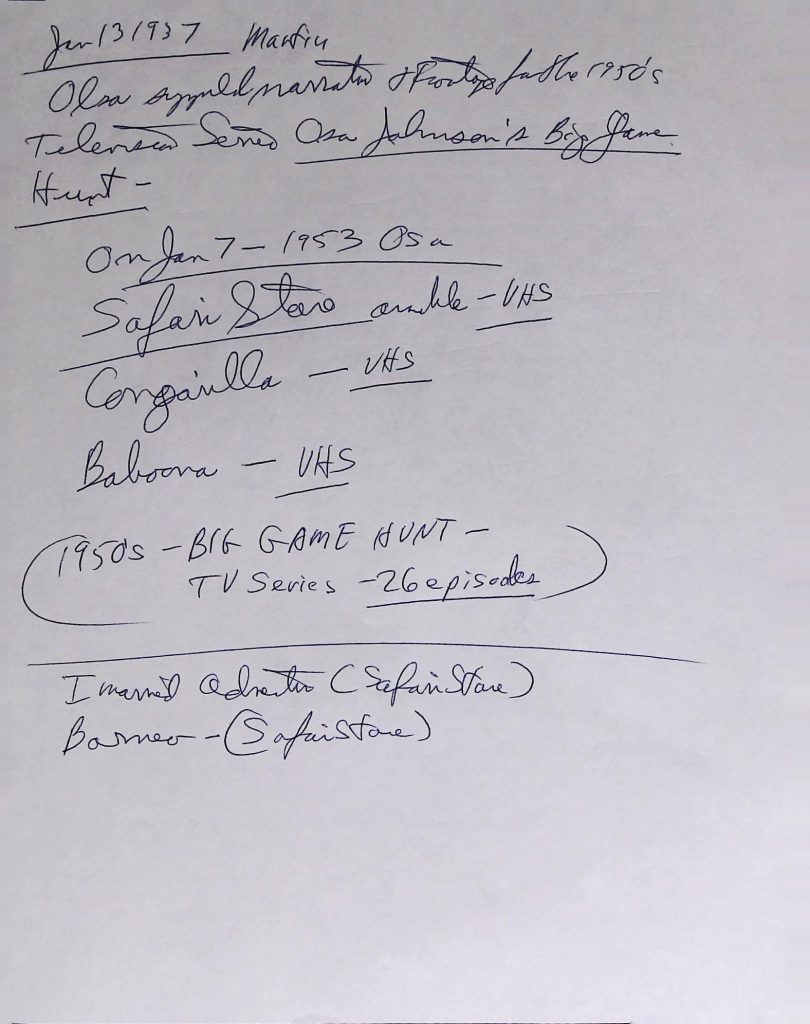 Jan 13 1937 Martin
Olsa supplied narration + Footage for the 1950's
Television Series Osa Johnson's Big Game
Hunt -
On Jan 7 - 1953 Osa
Safari Store - VHS
Congorilla - VHS
Baboona - VHS
(1950s - BIG GAME HUNT -
TV Series - 26 episodes)
I married Adventure (Safari Store)
Borneo - (Safari Store)